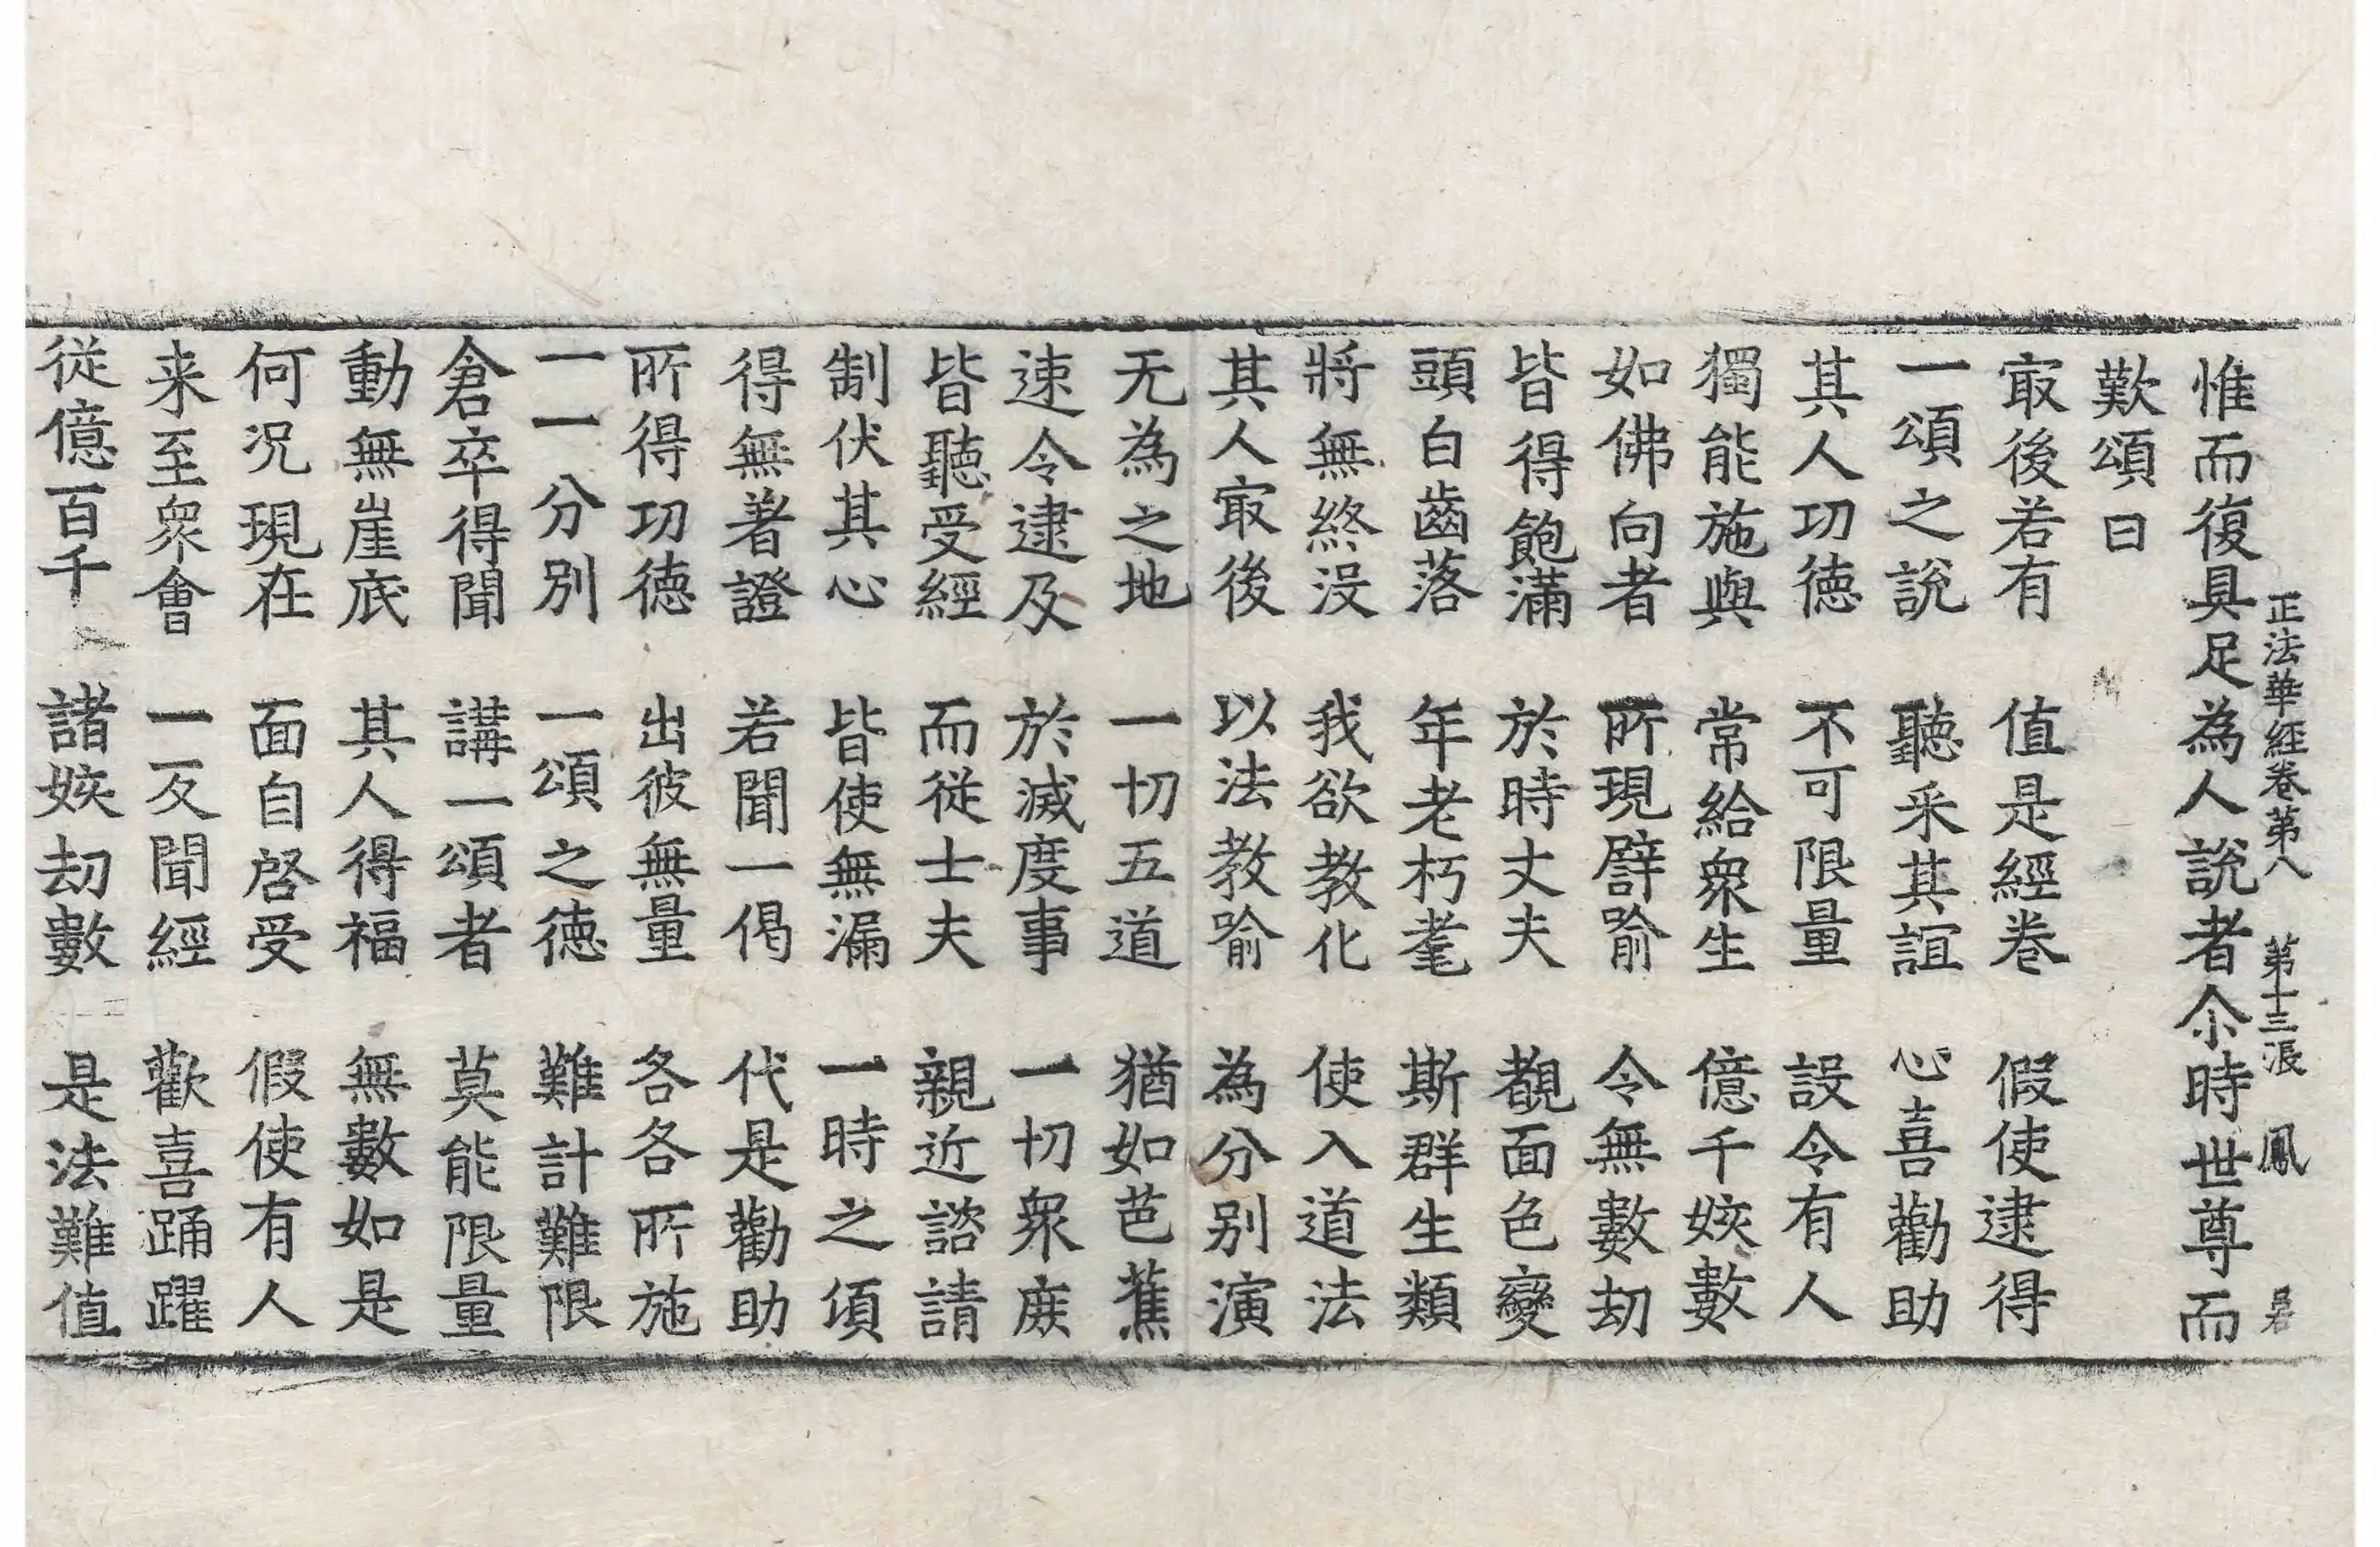 正法華経卷第八 第十三張 鳳
惟而復具足為人說者尒時世尊而
歎頌曰
㝡後若有 值是經卷 假使逮得
一頌之說 聽釆其誼 心喜勸助
其人功徳 不可限量 設令有人
獨能施與 常給衆生 億千姟數
如佛向者 所現譬喻 令無數劫
皆得飽滿 於時丈夫 覩面色變
頭白齒落 年老朽耄 斯群生類
將無終没 我欲教化 使入道法
其人㝡後 以法教喻 為分别演
无為之地 一切五道 猶如芭蕉
速令逮及 於滅度事 一切衆庻
皆聽受經 而從士夫 親近諮請
制伏其心 皆使無漏 一時之須
得無著證 若聞一偈 代是勸助
所得功徳 出彼無量 各各所施
一一分別 一頌之徳 難計難限
倉卒得聞 講一頌者 莫能限量
動無崖底 其人得福 無數如是
何况現在 面自啓受 假使有人
来至衆會 一反聞經 歡喜踊躍
從億百千 諸姟劫數 是法難值